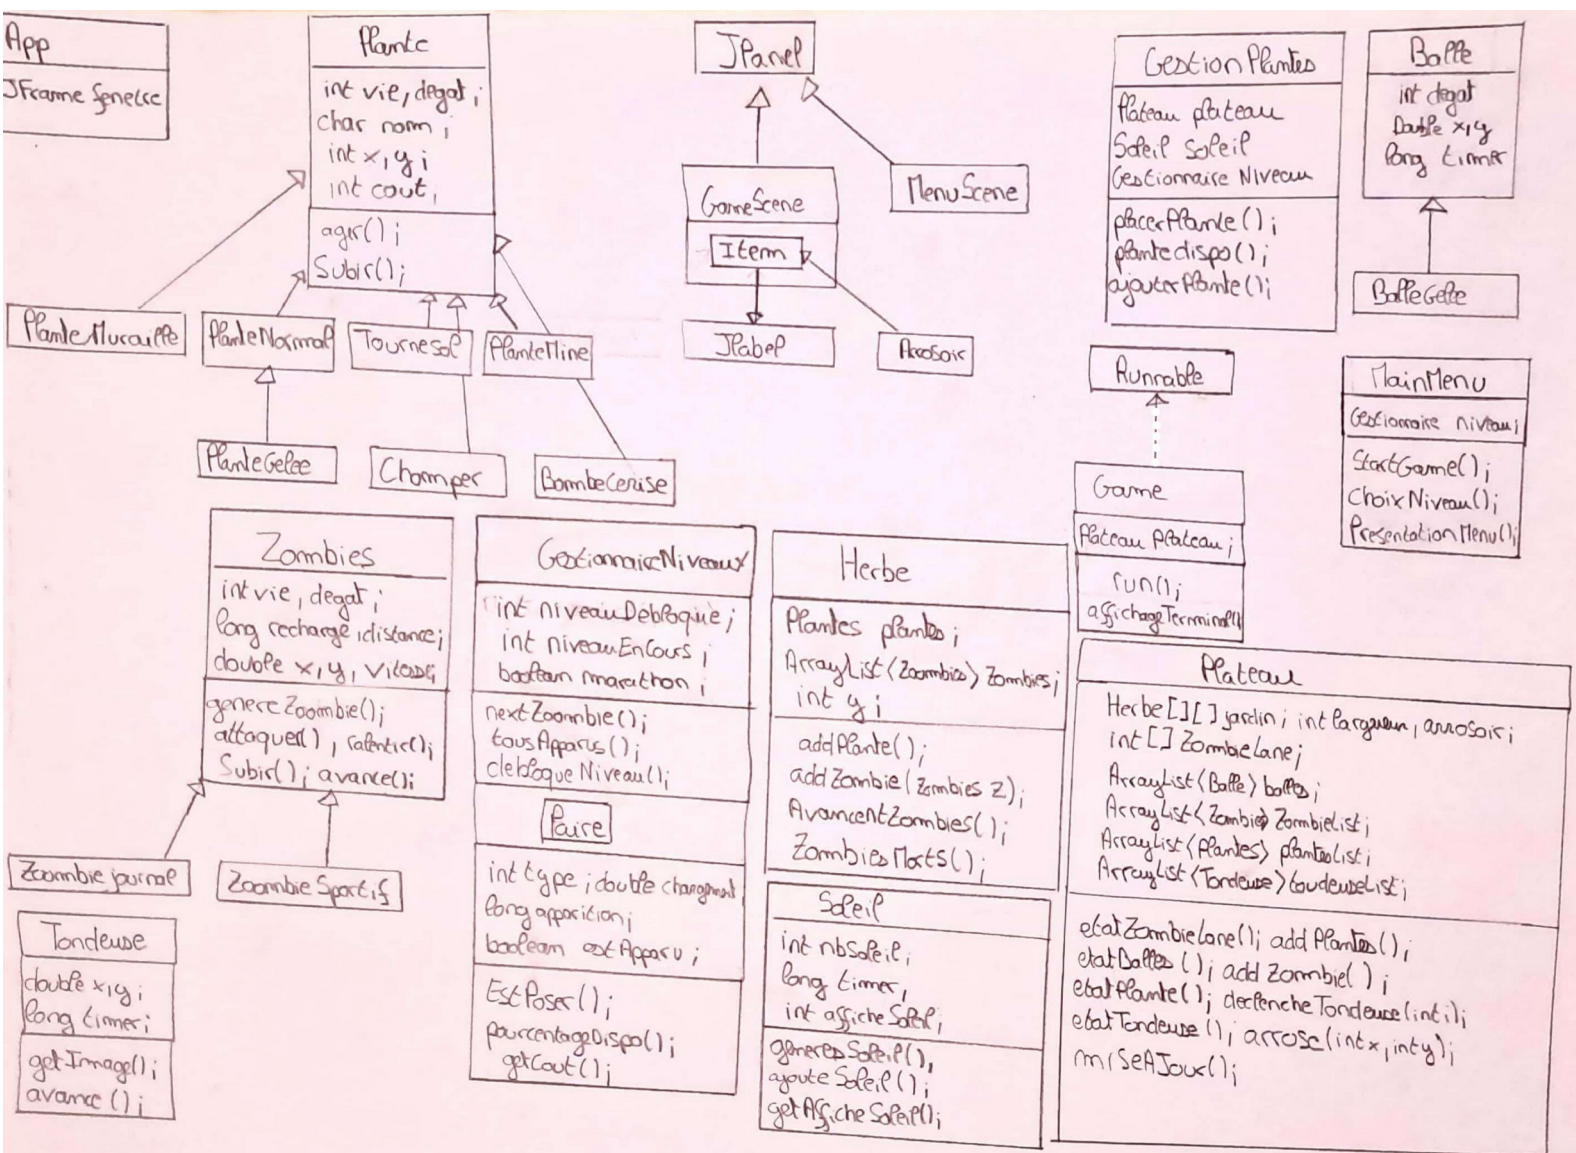 App
JFrame fenetre
Plante
int vie, degat ;
char nom ;
int x, y ;
int cout,
agir();
Subir();
PlanteMuraille
PlanteNormal
Tournesol
PlanteMine
PlanteGelee
Chomper
BombeCerise
JPanel
GameScene
Item
MenuScene
JLabel
Arrosoir
GestionPlantes
Plateau plateau
Soleil soleil
Gestionnaire Niveau
placerPlante();
plantedispo();
ajouterPlante();
Balle
int degat
Double x,y
long timer
BalleGelee
Runnable
Game
Plateau Plateau ;
run();
affichageTerminal()
MainMenu
Gestionnaire niveau;
StartGame();
ChoixNiveau();
PresentationMenu();
Zombies
int vie, degat ;
long recharge, distance;
double x, y, vitesse;
genereZoombie();
attaquer(), ralentir();
Subir(); avance();
Zoombie journal
Zoombie Sportif
Tondeuse
double x,y;
long timer;
getImage();
avance();
GestionnaireNiveaux
int niveauDebloquie;
int niveauEnCours ;
boolean marathon ;
nextZoombie();
tousApparus();
debloqueNiveau();
Paire
int type ; double changement
long apparition;
boolean estApparu ;
EstPoser();
pourcentageDispo();
getCout();
Herbe
Plantes plantes ;
ArrayList<Zoombies> zombies;
int y ;
addPlante();
addZombie(Zombies Z);
AvancentZombies();
ZombiesMorts();
Soleil
int nbSoleil;
long timer,
int afficheSoleil;
generesSoleil(),
ajouteSoleil();
getAfficheSoleil();
Plateau
Herbe[][] jardin; int largueur, arrosoir;
int[] ZombieLane;
ArrayList<Balle> balles;
ArrayList<Zombie> ZombieList;
ArrayList<Plantes> plantesList;
ArrayList<Tondeuse> toudeuseList;
etatZombieLane(); addPlantes();
etatBalles(); addZombie();
etatPlante(); declencheTondeuse(int i);
etatTondeuse(); arrose(int x, int y);
miseAJour();